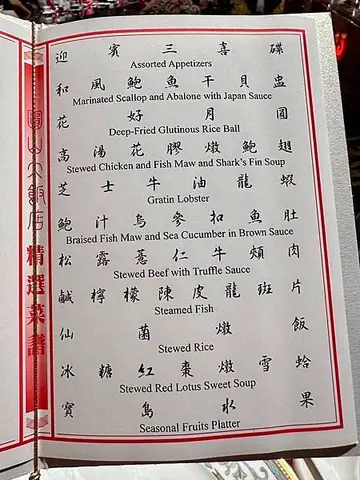 圓山大飯店
精選菜譜
迎賓三喜碟
Assorted Appetizers
和風鮑魚干貝盅
Marinated Scallop and Abalone with Japan Sauce
花好月圓
Deep-Fried Glutinous Rice Ball
高湯花膠燉鮑翅
Stewed Chicken and Fish Maw and Shark's Fin Soup
芝士牛油龍蝦
Gratin Lobster
鮑汁烏參扣魚肚
Braised Fish Maw and Sea Cucumber in Brown Sauce
松露薏仁牛頰肉
Stewed Beef with Truffle Sauce
鹹檸檬陳皮龍斑片
Steamed Fish
仙菌燉飯
Stewed Rice
冰糖紅棗燉雪蛤
Stewed Red Lotus Sweet Soup
寶島水果
Seasonal Fruits Platter